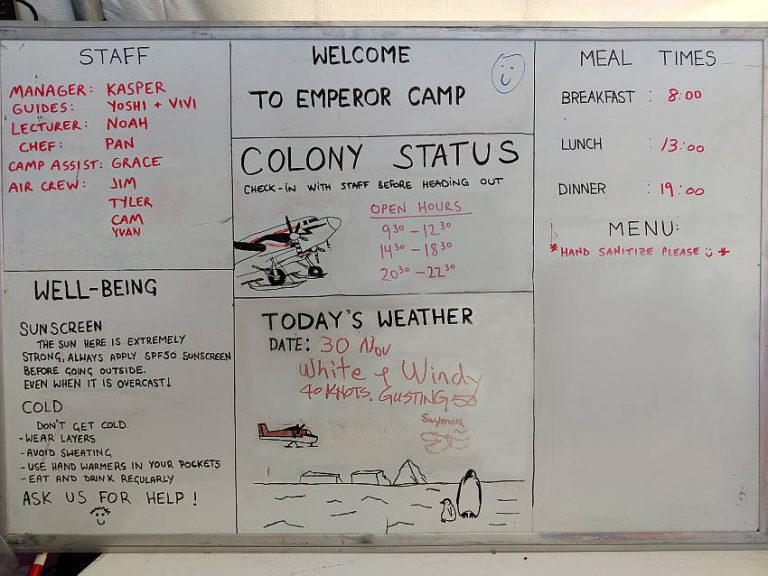 STAFF
MANAGER: KASPER
GUIDES: YOSHI + VIVI
LECTURER: NOAH
CHEF: PAN
CAMP ASSIST: GRACE
AIR CREW: JIM
TYLER
CAM
YVAN
WELL-BEING
SUNSCREEN
THE SUN HERE IS EXTREMELY
STRONG, ALWAYS APPLY SPF50 SUNSCREEN
BEFORE GOING OUTSIDE.
EVEN WHEN IT IS OVERCAST!
COLD
DON'T GET COLD.
- WEAR LAYERS
- AVOID SWEATING
- USE HAND WARMERS IN YOUR POCKETS
- EAT AND DRINK REGULARLY
ASK US FOR HELP!
WELCOME
TO EMPEROR CAMP
COLONY STATUS
CHECK-IN WITH STAFF BEFORE HEADING OUT
OPEN HOURS
9³⁰ - 12³⁰
14³⁰ - 18³⁰
20³⁰ - 22³⁰
TODAY'S WEATHER
DATE: 30 Nov
White & Windy
40 KNOTS. GUSTING 50
MEAL TIMES
BREAKFAST : 8:00
LUNCH : 13:00
DINNER : 19:00
MENU:
* HAND SANITIZE PLEASE *